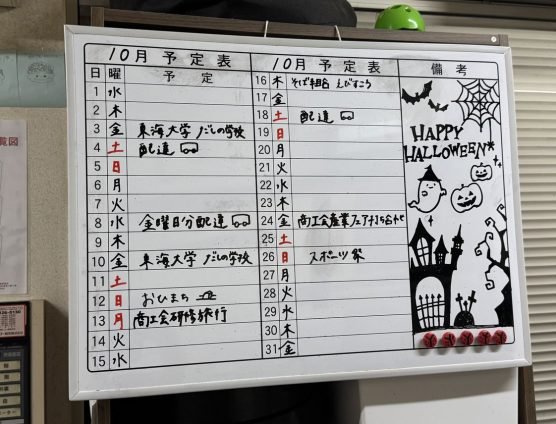 10月 予定表
日 曜 予定
1 水
2 木
3 金 東海大学 だしの学校
4 土 配達
5 日
6 月
7 火
8 水 金曜日分配達
9 木
10 金 東海大学 だしの学校
11 土
12 日 おひまち
13 月 商工会研修旅行
14 火
15 水
10月 予定表
16 木 そば組合 えびすこう
17 金
18 土 配達
19 日
20 月
21 火
22 水
23 木
24 金 商工会産業フェア
25 土
26 日 スポーツ祭
27 月
28 火
29 水
30 木
31 金
備考
HAPPY
HALLOWEEN*